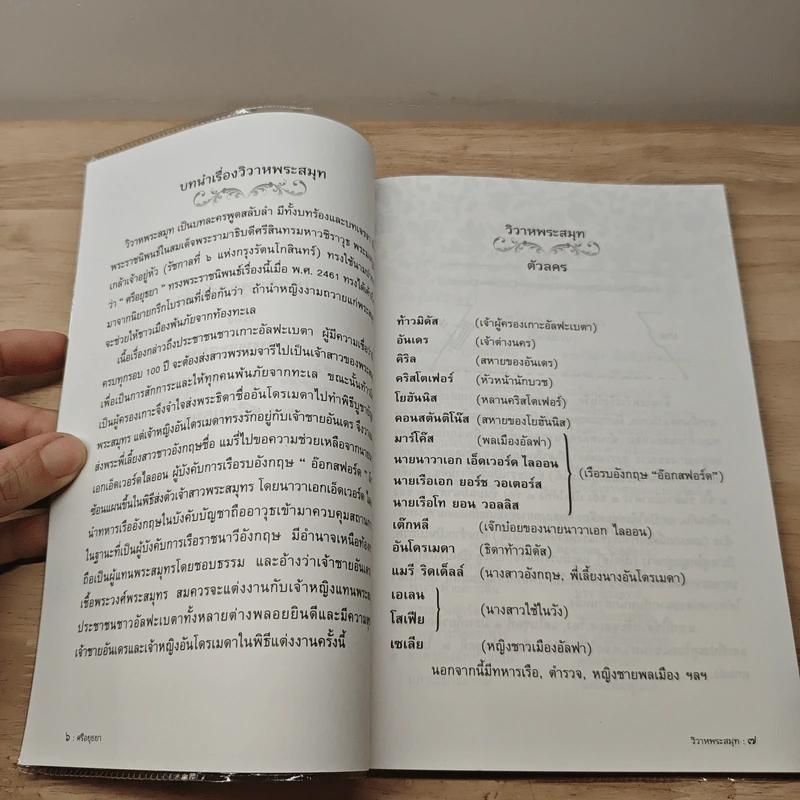 บทนำเรื่องวิวาหพระสมุท
วิวาหพระสมุท เป็นบทละครพูดสลับลำ มีทั้งบทร้องและบทเจรจา
พระราชนิพนธ์ในสมเด็จพระรามาธิบดีศรีสินทรมหาวชิราวุธ
เกล้าเจ้าอยู่หัว (รัชกาลที่ ๖ แห่งกรุงรัตนโกสินทร์) ทรงใช้
ว่า “ ศรีอยุธยา ” ทรงพระราชนิพนธ์เรื่องนี้เมื่อ พ.ศ. 2461
มาจากนิยายกรีกโบราณที่เชื่อกันว่า ถ้านำหญิงงามถวายแก่
จะช่วยให้ชาวเมืองพ้นภัยจากท้องทะเล
เนื้อเรื่องกล่าวถึงประชาชนชาวเกาะอัลฟะเบตา ผู้มีความเชื่อ
ครบทุกรอบ 100 ปี จะต้องส่งสาวพรหมจารีไปเป็นเจ้าสาวของ
เพื่อเป็นการสักการะและให้ทุกคนพ้นภัยจากทะเล ขณะนั้น
เป็นผู้ครองเกาะจึงจำใจส่งพระธิดาชื่ออันโดรเมดาไปทำพิธี
พระสมุทร แต่เจ้าหญิงอันโดรเมดาทรงรักอยู่กับเจ้าชายอันเดร
ส่งพระพี่เลี้ยงสาวชาวอังกฤษชื่อ แมรี่ไปขอความช่วยเหลือจาก
เอกเอ็ดเวิร์ดไลออน ผู้บังคับการเรือรบอังกฤษ “ อ๊อกสฟอร์ด ”
ซ้อนแผนขึ้นในพิธีส่งตัวเจ้าสาวพระสมุทร โดยนาวาเอกเอ็ดเวิร์ด
นำทหารเรืออังกฤษในบังคับบัญชาถืออาวุธเข้ามาควบคุม
ในฐานะที่เป็นผู้บังคับการเรือราชนาวีอังกฤษ มีอำนาจเหนือ
ถือเป็นผู้แทนพระสมุทรโดยชอบธรรม และอ้างว่าเจ้าชายอันเดร
เชื้อพระวงศ์พระสมุทร สมควรจะแต่งงานกับเจ้าหญิงแทน
ประชาชนชาวอัลฟะเบตาทั้งหลายต่างพลอยยินดีและมี
เจ้าชายอันเดรและเจ้าหญิงอันโดรเมดาในพิธีแต่งงานครั้งนี้
๖ : ศรีอยุธยา
วิวาหพระสมุท
ตัวลคร
ท้าวมิดัส (เจ้าผู้ครองเกาะอัลฟะเบตา)
อันเดร (เจ้าต่างนคร)
ดิริล (สหายของอันเดร)
คริสโตเฟอร์ (หัวหน้านักบวช)
โยฮันนิส (หลานคริสโตเฟอร์)
คอนสตันติโน๊ส (สหายของโยฮันนิส)
มาร์โค๊ส (พลเมืองอัลฟา)
นายนาวาเอก เอ็ดเวอร์ด ไลออน
นายเรือเอก ยอร์ช วอเตอร์ส (เรือรบอังกฤษ “อ๊อกสฟอร์ด”)
นายเรือโท ยอน วอลลิส
เต๊กหลี (เจ๊กบ๋อยของนายนาวาเอก ไลออน)
อันโดรเมดา (ธิดาท้าวมิดัส)
แมรี ริดเด็ลล์ (นางสาวอังกฤษ, พี่เลี้ยงนางอันโดรเมดา)
เอเลน
โสเฟีย (นางสาวใช้ในวัง)
เซเลีย (หญิงชาวเมืองอัลฟา)
นอกจากนี้มีทหารเรือ, ตำรวจ, หญิงชายพลเมือง ฯลฯ
วิวาหพระสมุท : ๗